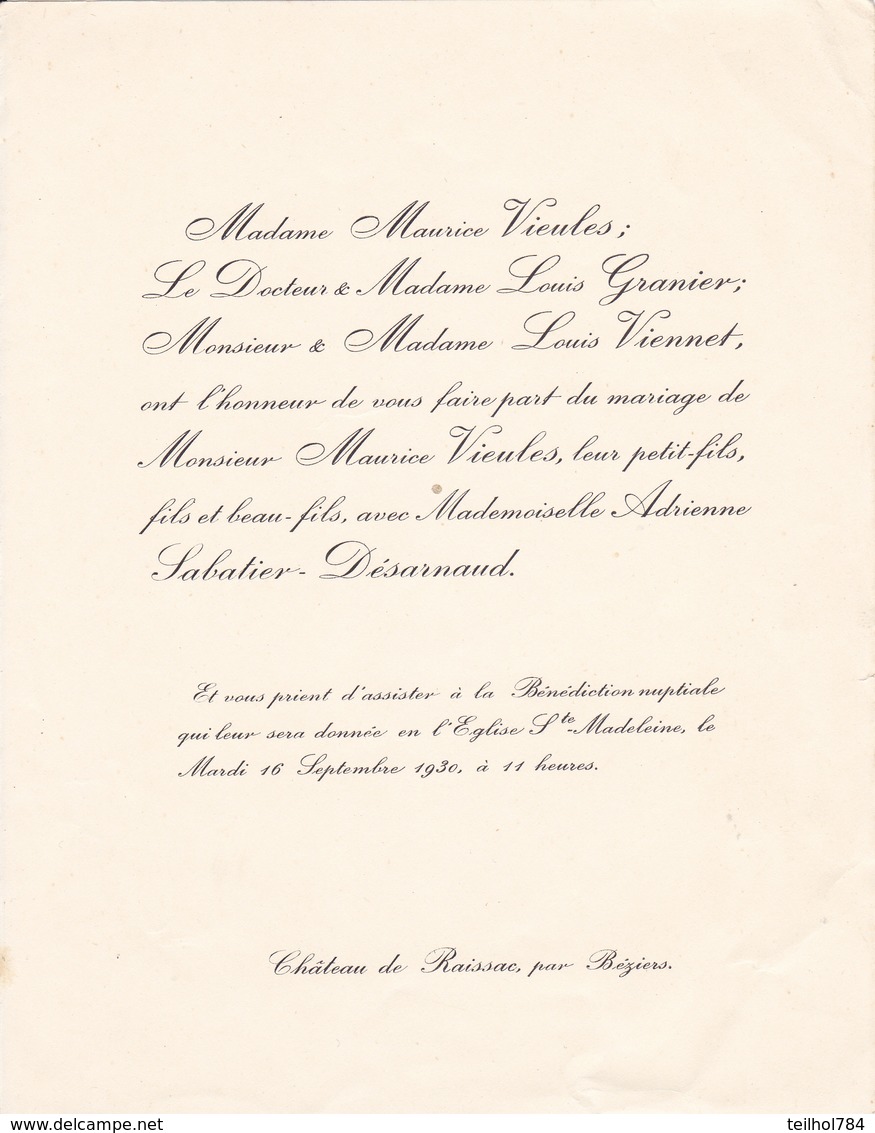 Madame Maurice Vieules ;
Le Docteur & Madame Louis Granier ;
Monsieur & Madame Louis Viennet,
ont l'honneur de vous faire part du mariage de
Monsieur Maurice Vieules, leur petit-fils,
fils et beau-fils, avec Mademoiselle Adrienne
Sabatier-Désarnaud.
Et vous prient d'assister à la Bénédiction nuptiale
qui leur sera donnée en l'Eglise Ste-Madeleine, le
Mardi 16 Septembre 1930, à 11 heures.
Château de Raissac, par Béziers.
www.delcampe.net
teilhol784